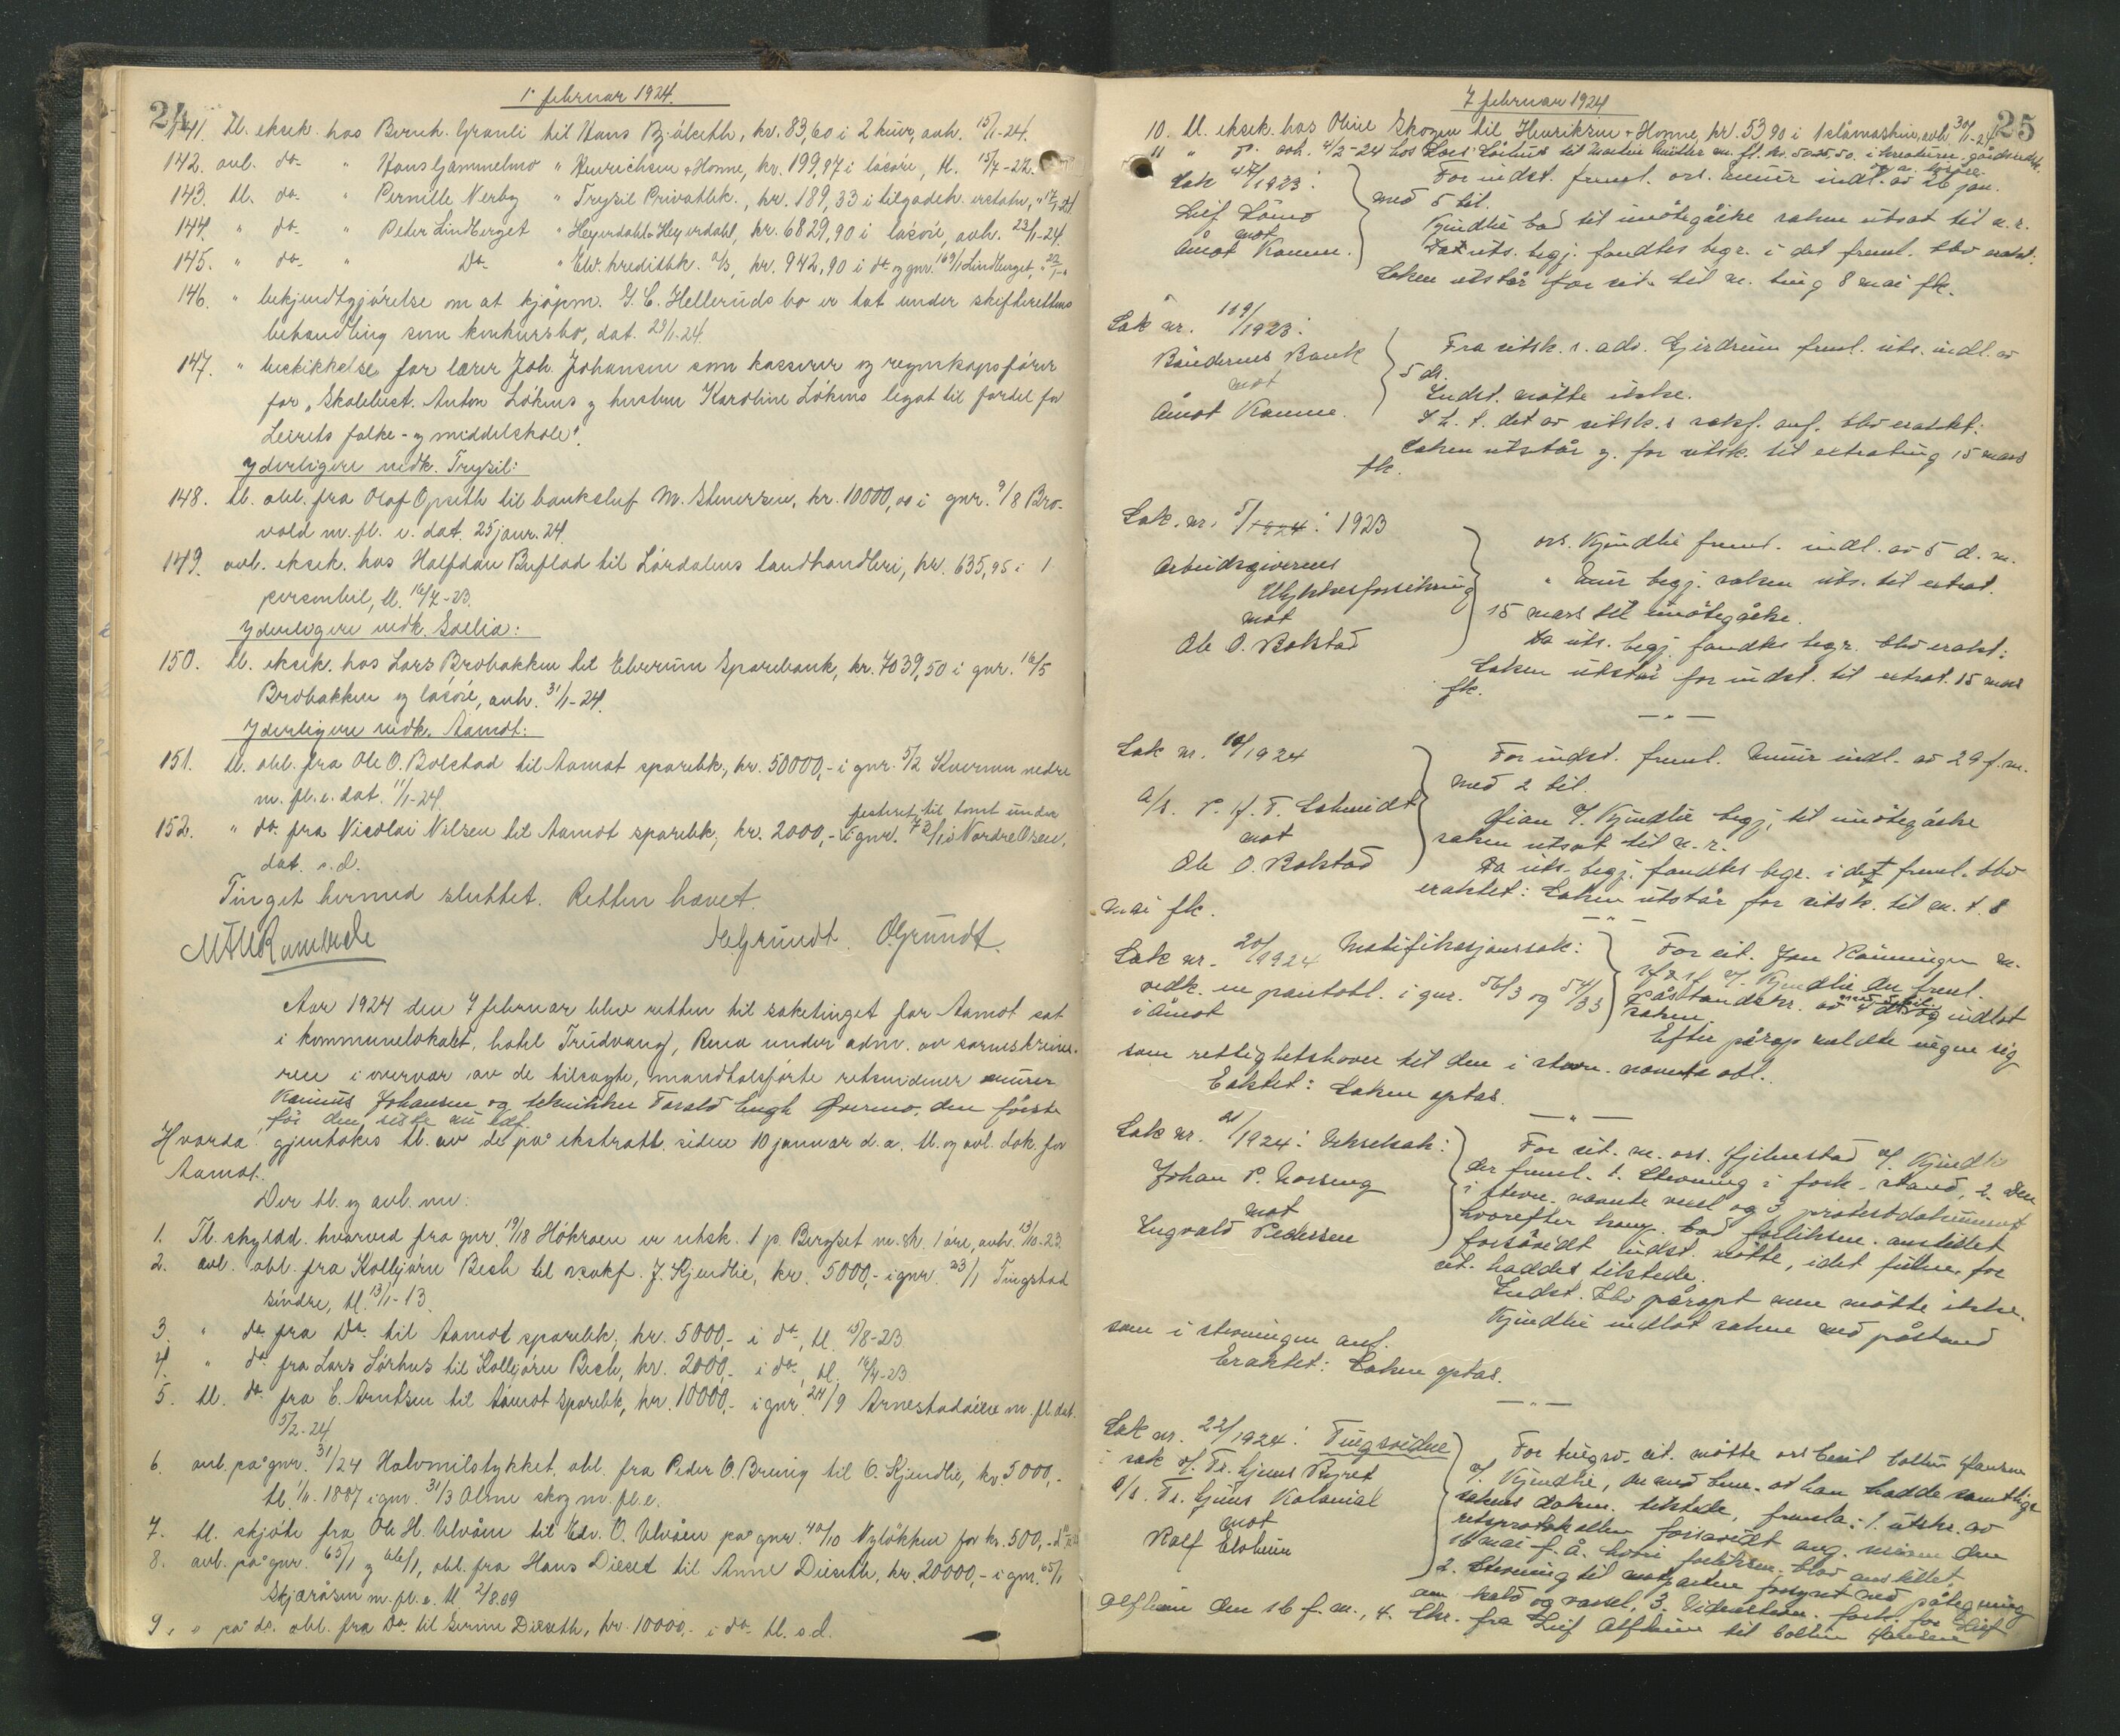 24
1. februar 1924.
141. tl. eksek. hos Bernh. Granli til Hans Bj. kr. 83,60 i 2 kuer, avh. 15/1-24.
142. avl. do. " Hans Gammelmo " Henrichsen & Honne, kr. 199,97 i løsøre, tl.
143. tl. do. " Pernille Nerby " Trysil Privatbk., kr. 189,33 i tilgodeh. erstatn., " 17/1-24
144. " do. " Peter Lindberget " Heyerdahl & Heyerdahl, kr. 6829,90 i løsøre, avh. 23/1-24.
145. " do. " Do. " Elv. kreditbk. a/s, kr. 942,90 i do. og gnr. Lindberget,
146. " bekjendtgjørelse om at kjøpm. G. C. Helleruds bo er tat under skifterettens
behandling som konkursbo, dat. 29/1-24.
147. " beskikkelse for lærer Joh. Johansen som kasserer og regnskapsfører
for "Skolebest. Anton Løkens og hustru Karoline Løkens legat til fordel for
Leirets folke- og middelskole".
Yderligere vedk. Trysil:
148. tl. obl. fra Olof Opseth til banksjef M. Stenersen, kr. 10000,00 i gnr. 9/8 Bro-
vold m. fl. e. dat. 25 jan. 24.
149. avl. eksek. hos Halfdan Buflod til Lørdalens landhandleri, kr. 635,95 i 1
personbil, tl. 16/7-23.
Yderligere vedk. Sollia:
150. tl. eksek. hos Lars Brobakken til Elverum Sparebank, kr. 7039,50 i gnr. 16/5
Brobakken og løsøre, avh. 31/1-24.
Yderligere vedk. Aamot:
151. tl. obl. fra Ole O. Bolstad til Aamot sparebk., kr. 50000,- i gnr. 5/2 Kvernen nedre
m. fl. e. dat. 11/1-24.
festeret til tomt under
152. " do. fra Nicolai Nilsen til Aamot sparebk., kr. 2000,- i gnr. 72/1 i Nordre Osen,
dat. s.d.
Tinget hermed sluttet. Retten hævet.
H. Grundt. O. Grundt.
Aar 1924 den 7 februar blev retten til saketinget for Aamot sat
i kommunelokalet, hotel Trudvang, Rena under adm. av sorenskrive-
ren i overvær av de tilsagte, mandtalsførte retsvidner murer
Rasmus Johansen og tekniker Torald Engh Øvermo, den første
før den siste nu edf.
Hvorda: gjentokes tl. av det på ekstratt. siden 10 januar d.a. tl. og avl. dok. for
Aamot.
Der tl. og avl. nu:
1. Tl. skyldd. hvorved fra gnr. 19/18 Høkroen er utsk. 1 p. Bergset m. sk. 1 øre, avh. 13/10-23.
2. avl. obl. fra Kolbjørn Bech til o.r.sakf. J. Kjendlie, kr. 5000,- i gnr. 23/1 Tingstad
søndre, tl. 13/1-13.
3. " do. fra Do. til Aamot sparebk, kr. 5000,- i do., tl. 10/8-23
4. " do. fra Lars Sørhus til Kolbjørn Bech, kr. 2000,- i do., tl. 16/4-23
5. tl. do. fra C. Arntsen til Aamot sparebk, kr. 10000,- i gnr. 24/9 Arnestadøien m. fl. dat.
5/2-24
6. avl. på gnr. 31/24 Halvmilstykket, obl. fra Peder O. Brenig til O. Kjendlie, kr. 5000,-
tl. 1/11. 1887 i gnr. 31/3 Alme skog m. fl. e.
7. tl. skjøte fra Ole H. Ulvåen til Edv. O. Ulvåen på gnr. 40/10 Nyløkken for kr. 500,-
8. avl. på gnr. 65/1 og 66/1, obl. fra Hans Dieset til Anne Dieseth, kr. 20000,- i gnr. 65/1
Skjæråsen m. fl. e. tl. 2/8.09
9. " på do. obl. fra Do. til Dieseth, kr. 10000,- i do. tl. s.d.
25
7 februar 1924
10. tl. eksek. hos Oline Skogen til Henriksen & Honne, kr. 53,90 i 1 slåmaskin, avh. 30/1-24
11 " do. avh. 4/2-24 hos Lars Sørhus til Martin Müller m. fl. kr. i kreaturer, gårdsredsk.
Sak 47/1923:
Leif Lømo
mot
Åmot Komm.
For indst. freml. ors. Munir indl. av 26 jan.
med 5 bil.
Kjendlie bad til imøtegåelse saken utsat til n. r.
Da uts. begj. fandtes begr. i det freml. blev eraktet:
Saken utstår for sit. til m. ting 8 mai fk.
Sak nr. 119/1923:
Bøndernes Bank
mot
Åmot Komm.
Fra sitsk. s. adv. Gjerdrum freml. uts. indl. av
5 ds.
Indst. møtte ikke.
I h. t. det av sitsk. s sakf. anf. blev eraktet:
Saken utstår og. for sitsk. til extrating 15 mars
fk.
Sak. nr. 5/1924: 1923
Arbeidsgivernes
Ulykkesforsikring
mot
Ole O. Bolstad
ors. Kjendlie freml. indl. av 5 d. m.
" Munir begj. saken uts. til extrat.
15 mars til imøtegåelse.
Da uts. begj. fandtes begr. blev eraktet:
Saken utstår for indst. til extrat. 15 mars
fk.
Sak nr. 10/1924
A/S. P. H. T. Schmidt
mot
Ole O. Bolstad
For indst. freml. Munir indl. av 29 f. m.
med 2 bil.
Kjendlie begj. til imøtegåelse
saken utsat til n. r.
Da uts. begj. fandtes begr. i det freml. blev
eraktet: Saken utstår for sitsk. til m. t. 8
mai fk.
Sak nr. 20/1924 Motifikasjonssak:
vedk. en pantobl. i gnr. 56/3 og 54/33
i Åmot
For cit. Jon Rønningen m.
fl. v/ Kjendlie der freml.
påstandskr. av 4 ds. og indlot
saken.
Efter påråp meldte ingen sig
som rettighetshaver til den i stevn. nævnte obl.
Eraktet: Saken optas.
Sak nr. 21/1924: Vekselsak:
Johan P. Norseng
mot
Ingvald Pedersen
For cit. m. ors. Gjelmestad v/ Kjendlie
der freml. 1. stevning i fork. stand, 2. den
i stevn. nævnte veksel og 3. protestdokument
hvorefter han bad forliksm. anstillet
forsåvidt indst. møtte, idet fuldm. for
cit. haddes tilstede.
Indst. blev påropt men møtte ikke.
Kjendlie indlot saken med påstand
som i stevningen anf.
Eraktet: Saken optas.
Sak nr. 22/1924: Tingsvidne
i sak v/ Tr. hjems Rynet
A/S. Tr. hjems Kolonial
mot
Rolf Elvheim
For tingsv. cit. møtte ors Emil Collin Hansen
v/ Kjendlie, der med bem. at han hadde samtlige
sakens dokum. tilstede, freml.: 1. utskr. av
retsprotokollen forsåvidt ang. møtet den
16 mai f. å. hvori forliksm. blev anstillet,
2. stevning til motparten forsynet med påtegning
om kald og varsel, 3. fork. for Leif
Alfheim den 16 f. m., 4. skr. fra Leif Alfheim til Collin Hansen